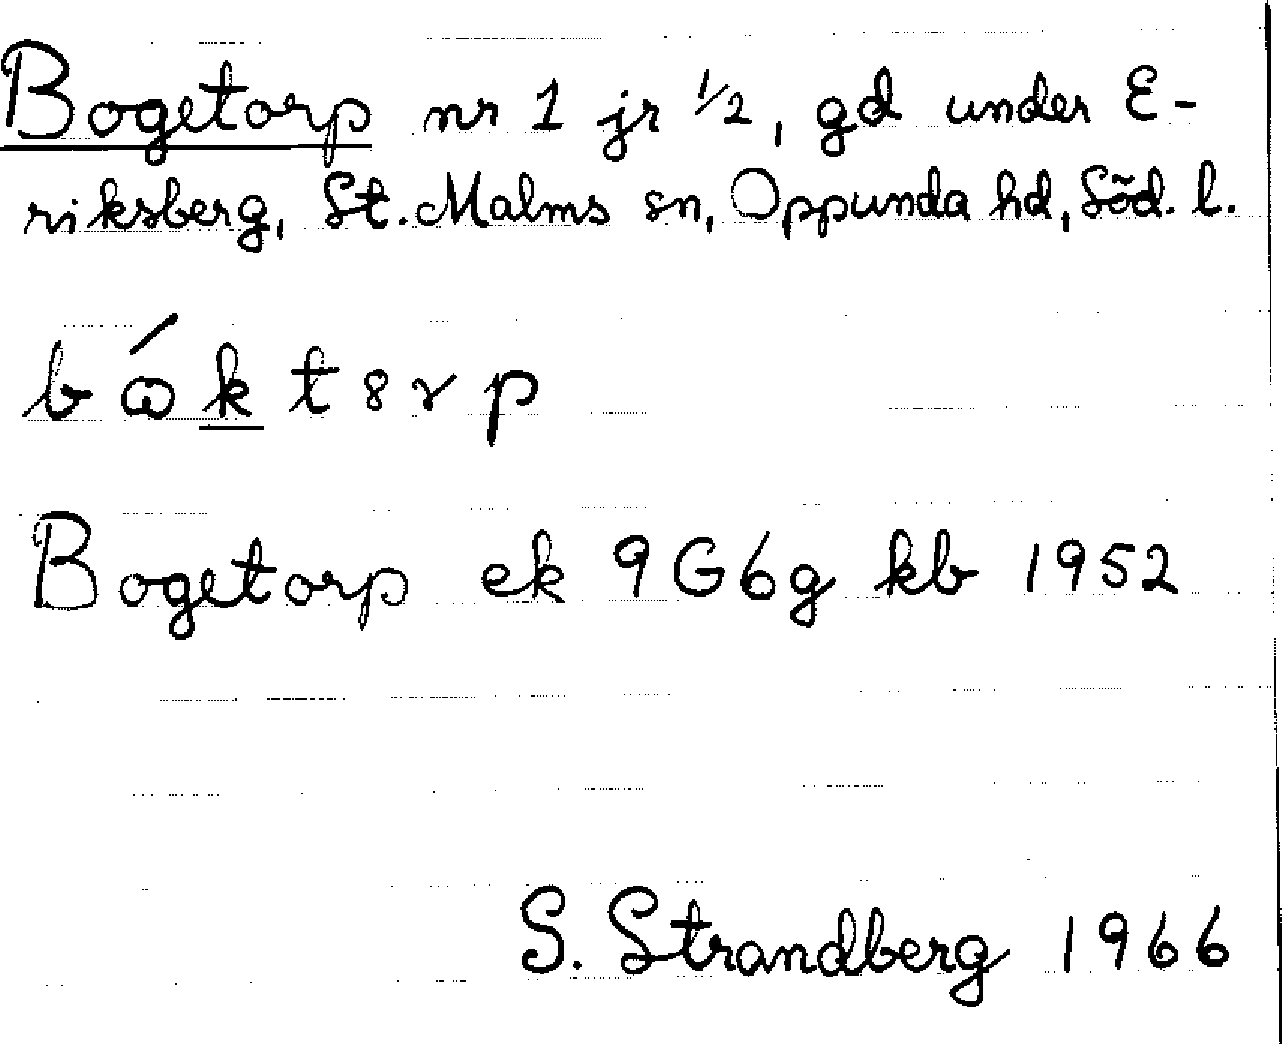 Bogetorp nr 1 jr 1/2, gd under E-
riksberg, St. Malms sn, Oppunda hd, Söd. l.
bώk t8rp
Bogetorp ek 9G6g kb 1952
S. Strandberg 1966